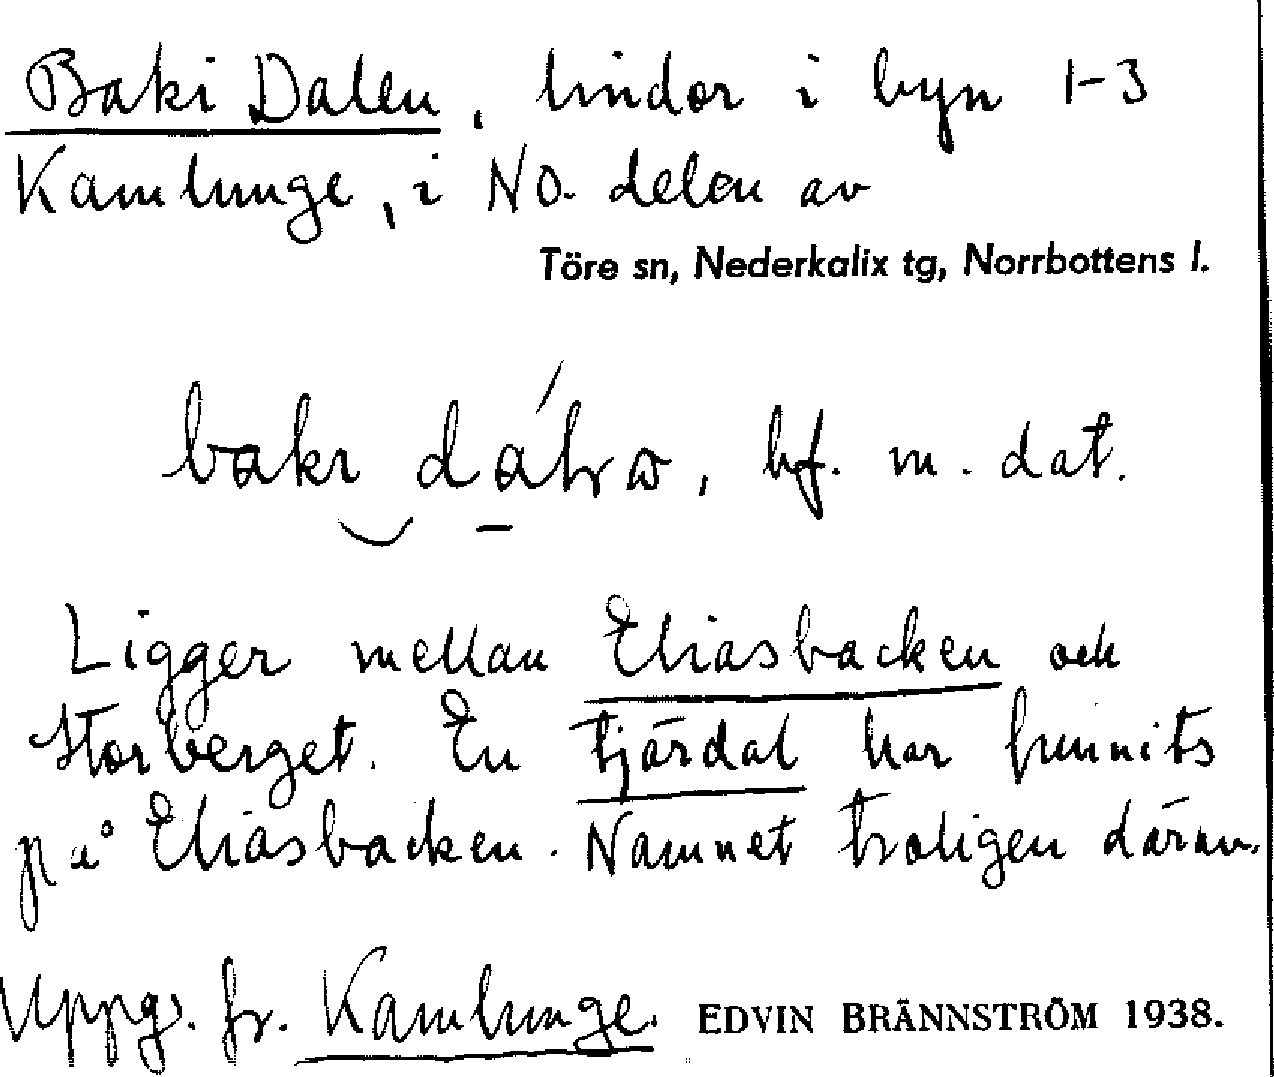 Baki Dalen, lindor i byn 1-3
Kamlunge, i NO. delen av
Töre sn, Nederkalix tg, Norrbottens l.
bf. m. dat.
Ligger mellan Eliasbacken och
Storberget. En tjärdal har funnits
på Eliasbacken. Namnet troligen därav.
Uppg. fr. Kamlunge. EDVIN BRÄNNSTRÖM 1938.